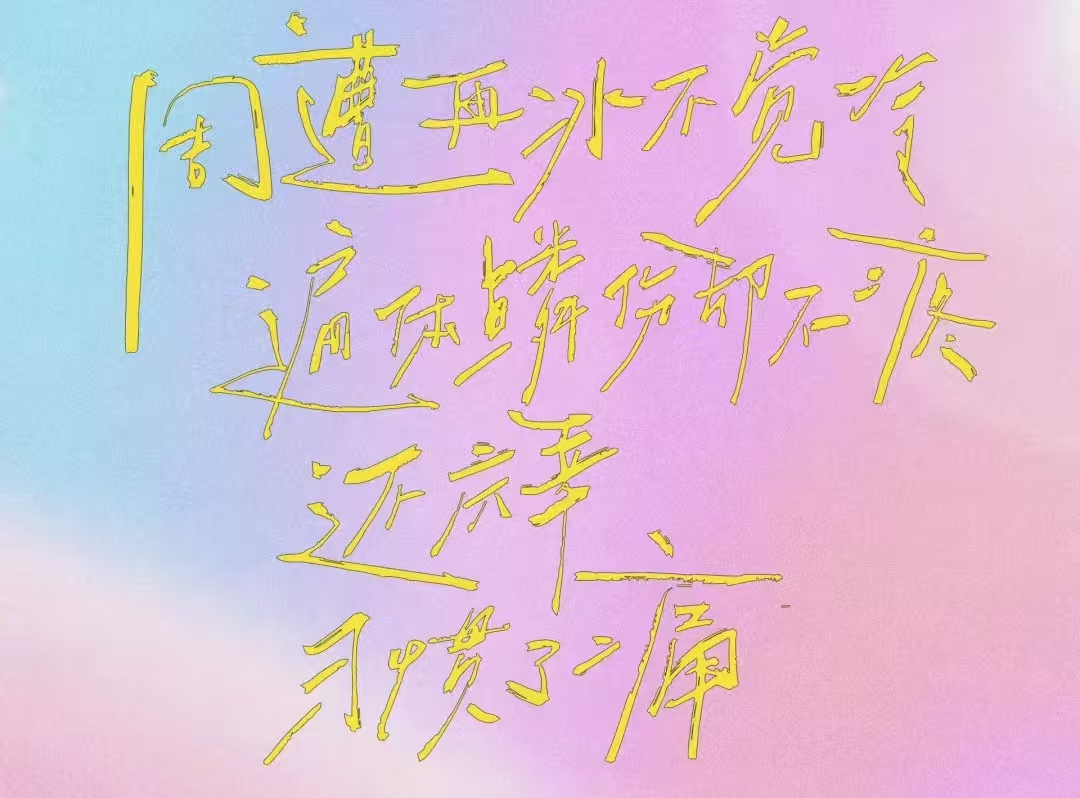 周遭再冰不觉冷
遍体鳞伤却不疼
还庆幸
习惯了痛